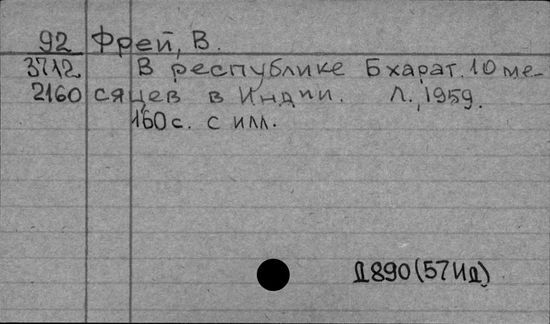 92 Фрей, В.
3712 В республике Бхарат. 10 ме-
2160 сяцев в Индии. Л., 1959.
160 с. с илл.
Д890(57ИД)